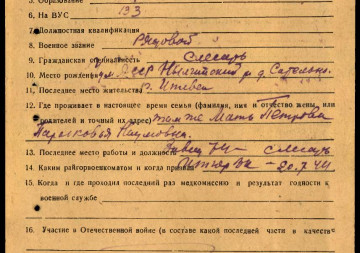 5. Образование
6. На ВУС 133
7. Должностная квалификация
8. Военное звание Рядовой
9. Гражданская специальность Слесарь
10. Место рождения АССР р-д
11. Последнее место жительства г. Ижевск
12. Где проживает в настоящее время семья (фамилия, имя и отчество жены или
родителей и точный их адрес) там же Мать Петрова
Парасковья Наумовна
13. Последнее место работы и должность завод 74 – слесарь
14. Каким райгорвоенкоматом и когда призван 20.7.41
15. Когда и где проходил последний раз медкомиссию и результат годности к
военной службе
16. Участие в Отечественной войне (в составе какой последней части и качестве